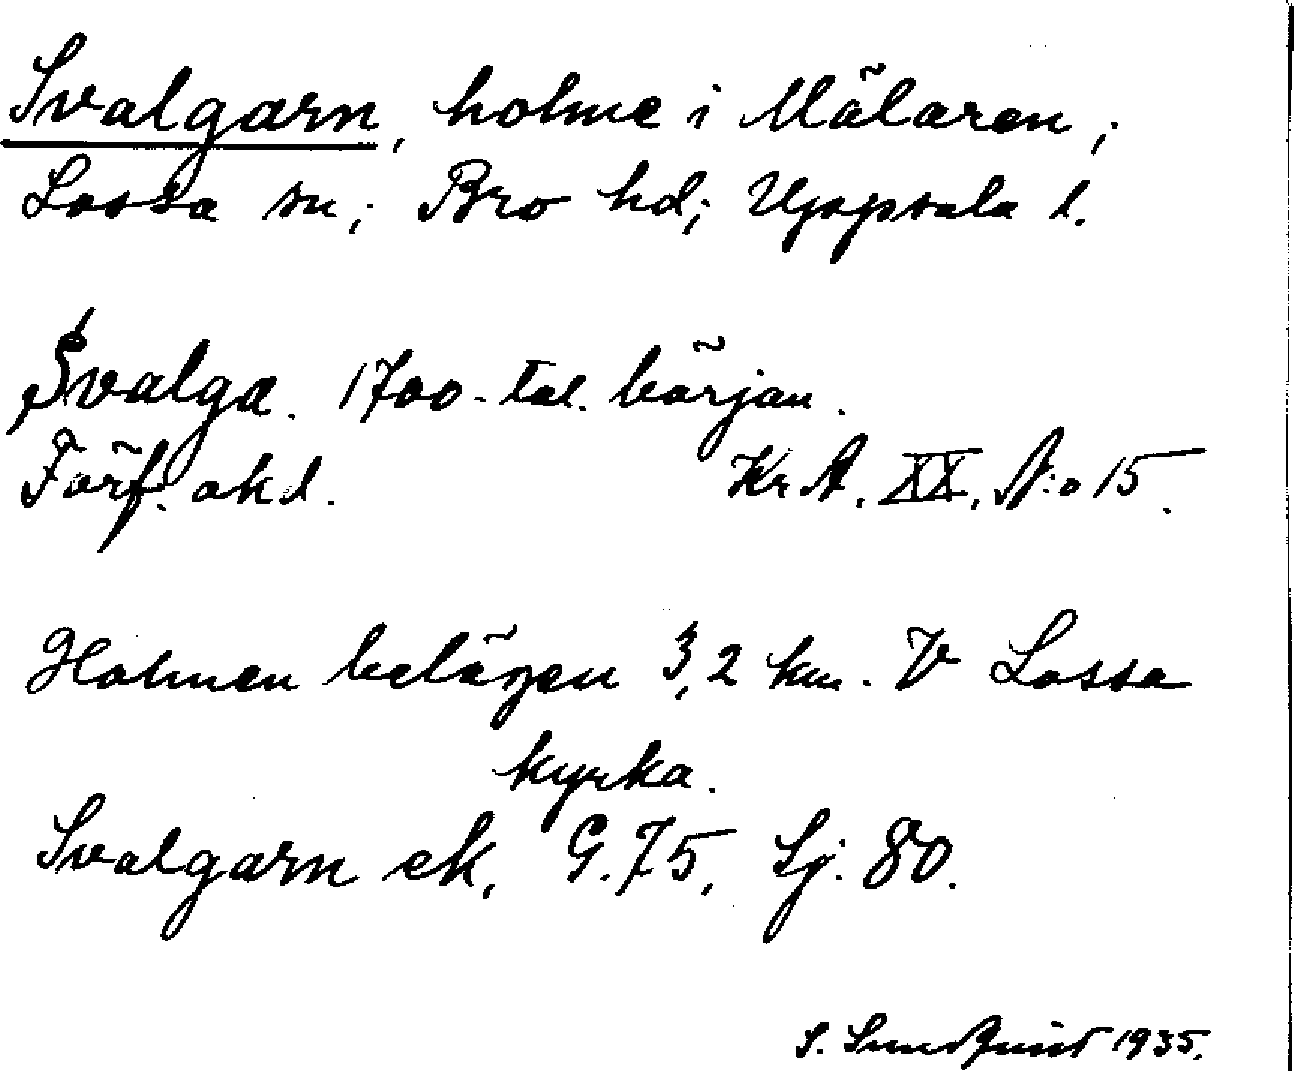 Svalgarn, holme i Mälaren;
Lossa sn; Bro hd; Uppsala l.
Svalga. 1700-tal. början.
Förf. okd. Kr A. XX, N:o 15.
Holmen belägen 3,2 km. V Lossa
kyrka.
Svalgarn ek, G. 75, Sj: 80.
S. Sundquist 1935.